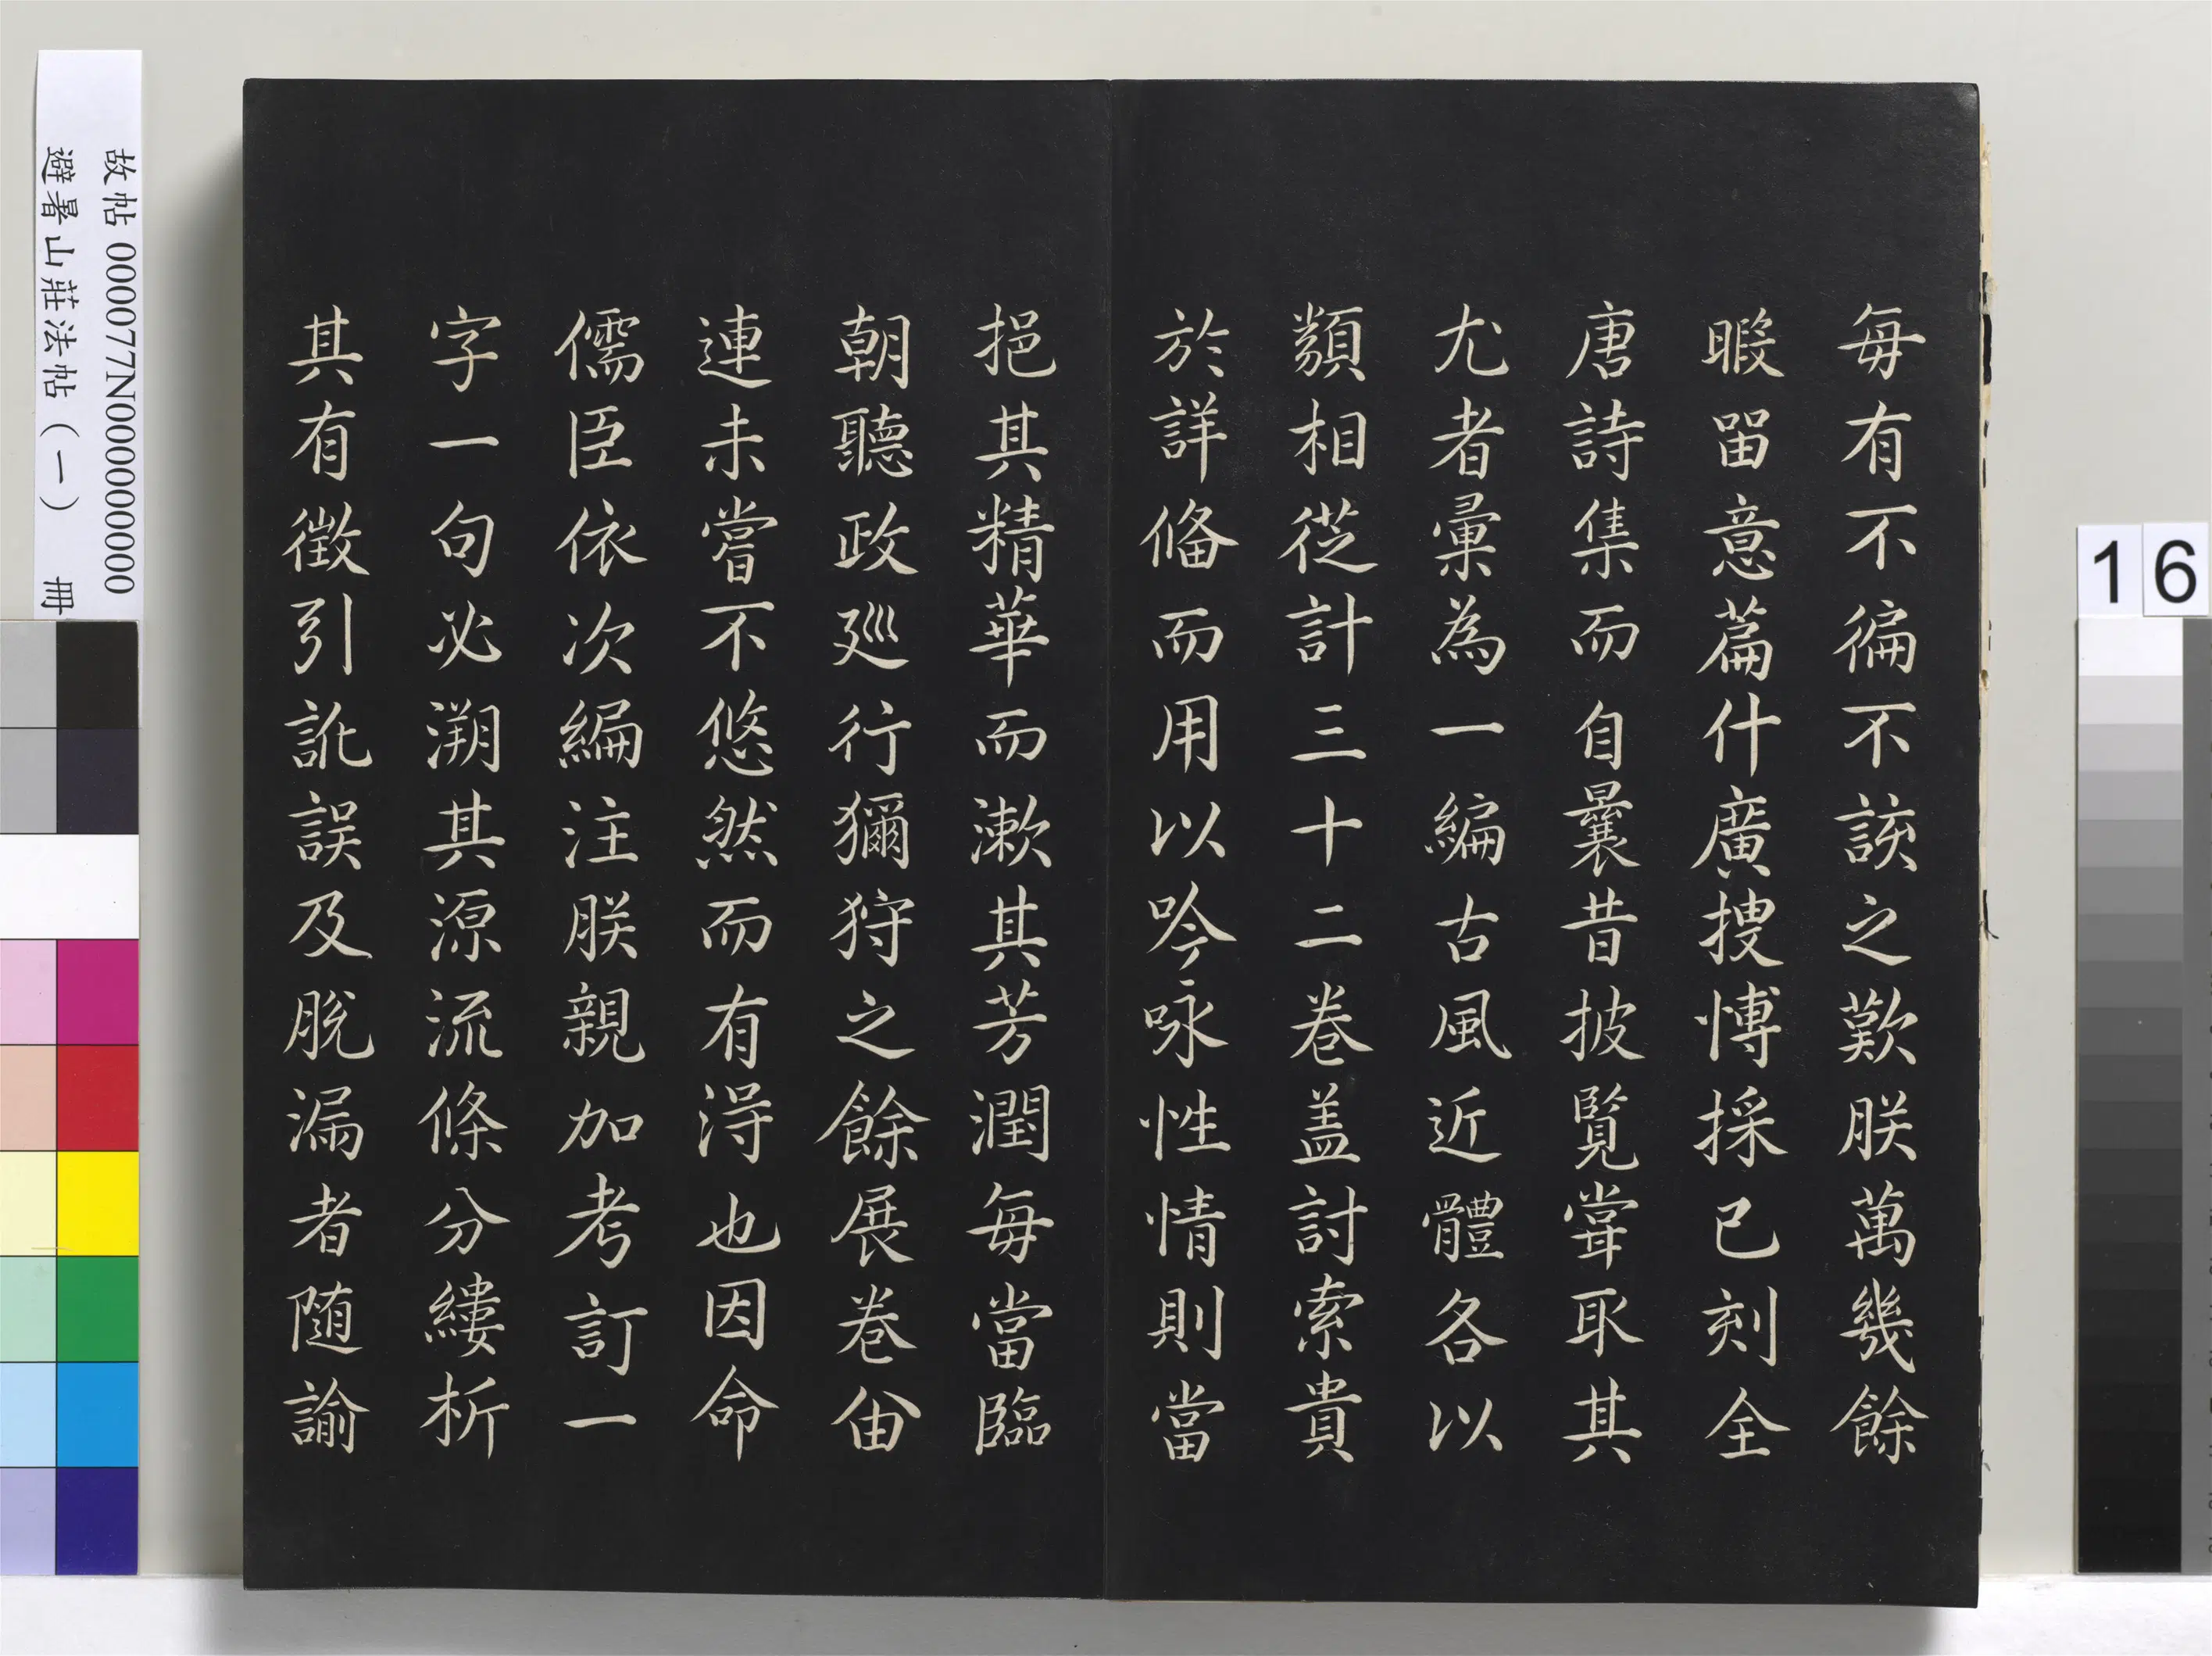 每有不徧不該之歎朕萬幾餘
暇留意篇什廣搜博採已刻全
唐詩集而自曩昔披覧嘗取其
尤者彙為一編古風近體各以
類相從計三十二卷盖討索貴
於詳俻而用以吟咏性情則當
挹其精華而漱其芳潤每當臨
朝聽政廵行獮狩之餘展卷留
連未嘗不悠然而有得也因命
儒臣依次編注朕親加考訂一
字一句必溯其源流條分縷析
其有徵引訛誤及脫漏者随諭
故帖 000077N000000000
避暑山莊法帖(一) 冊
16